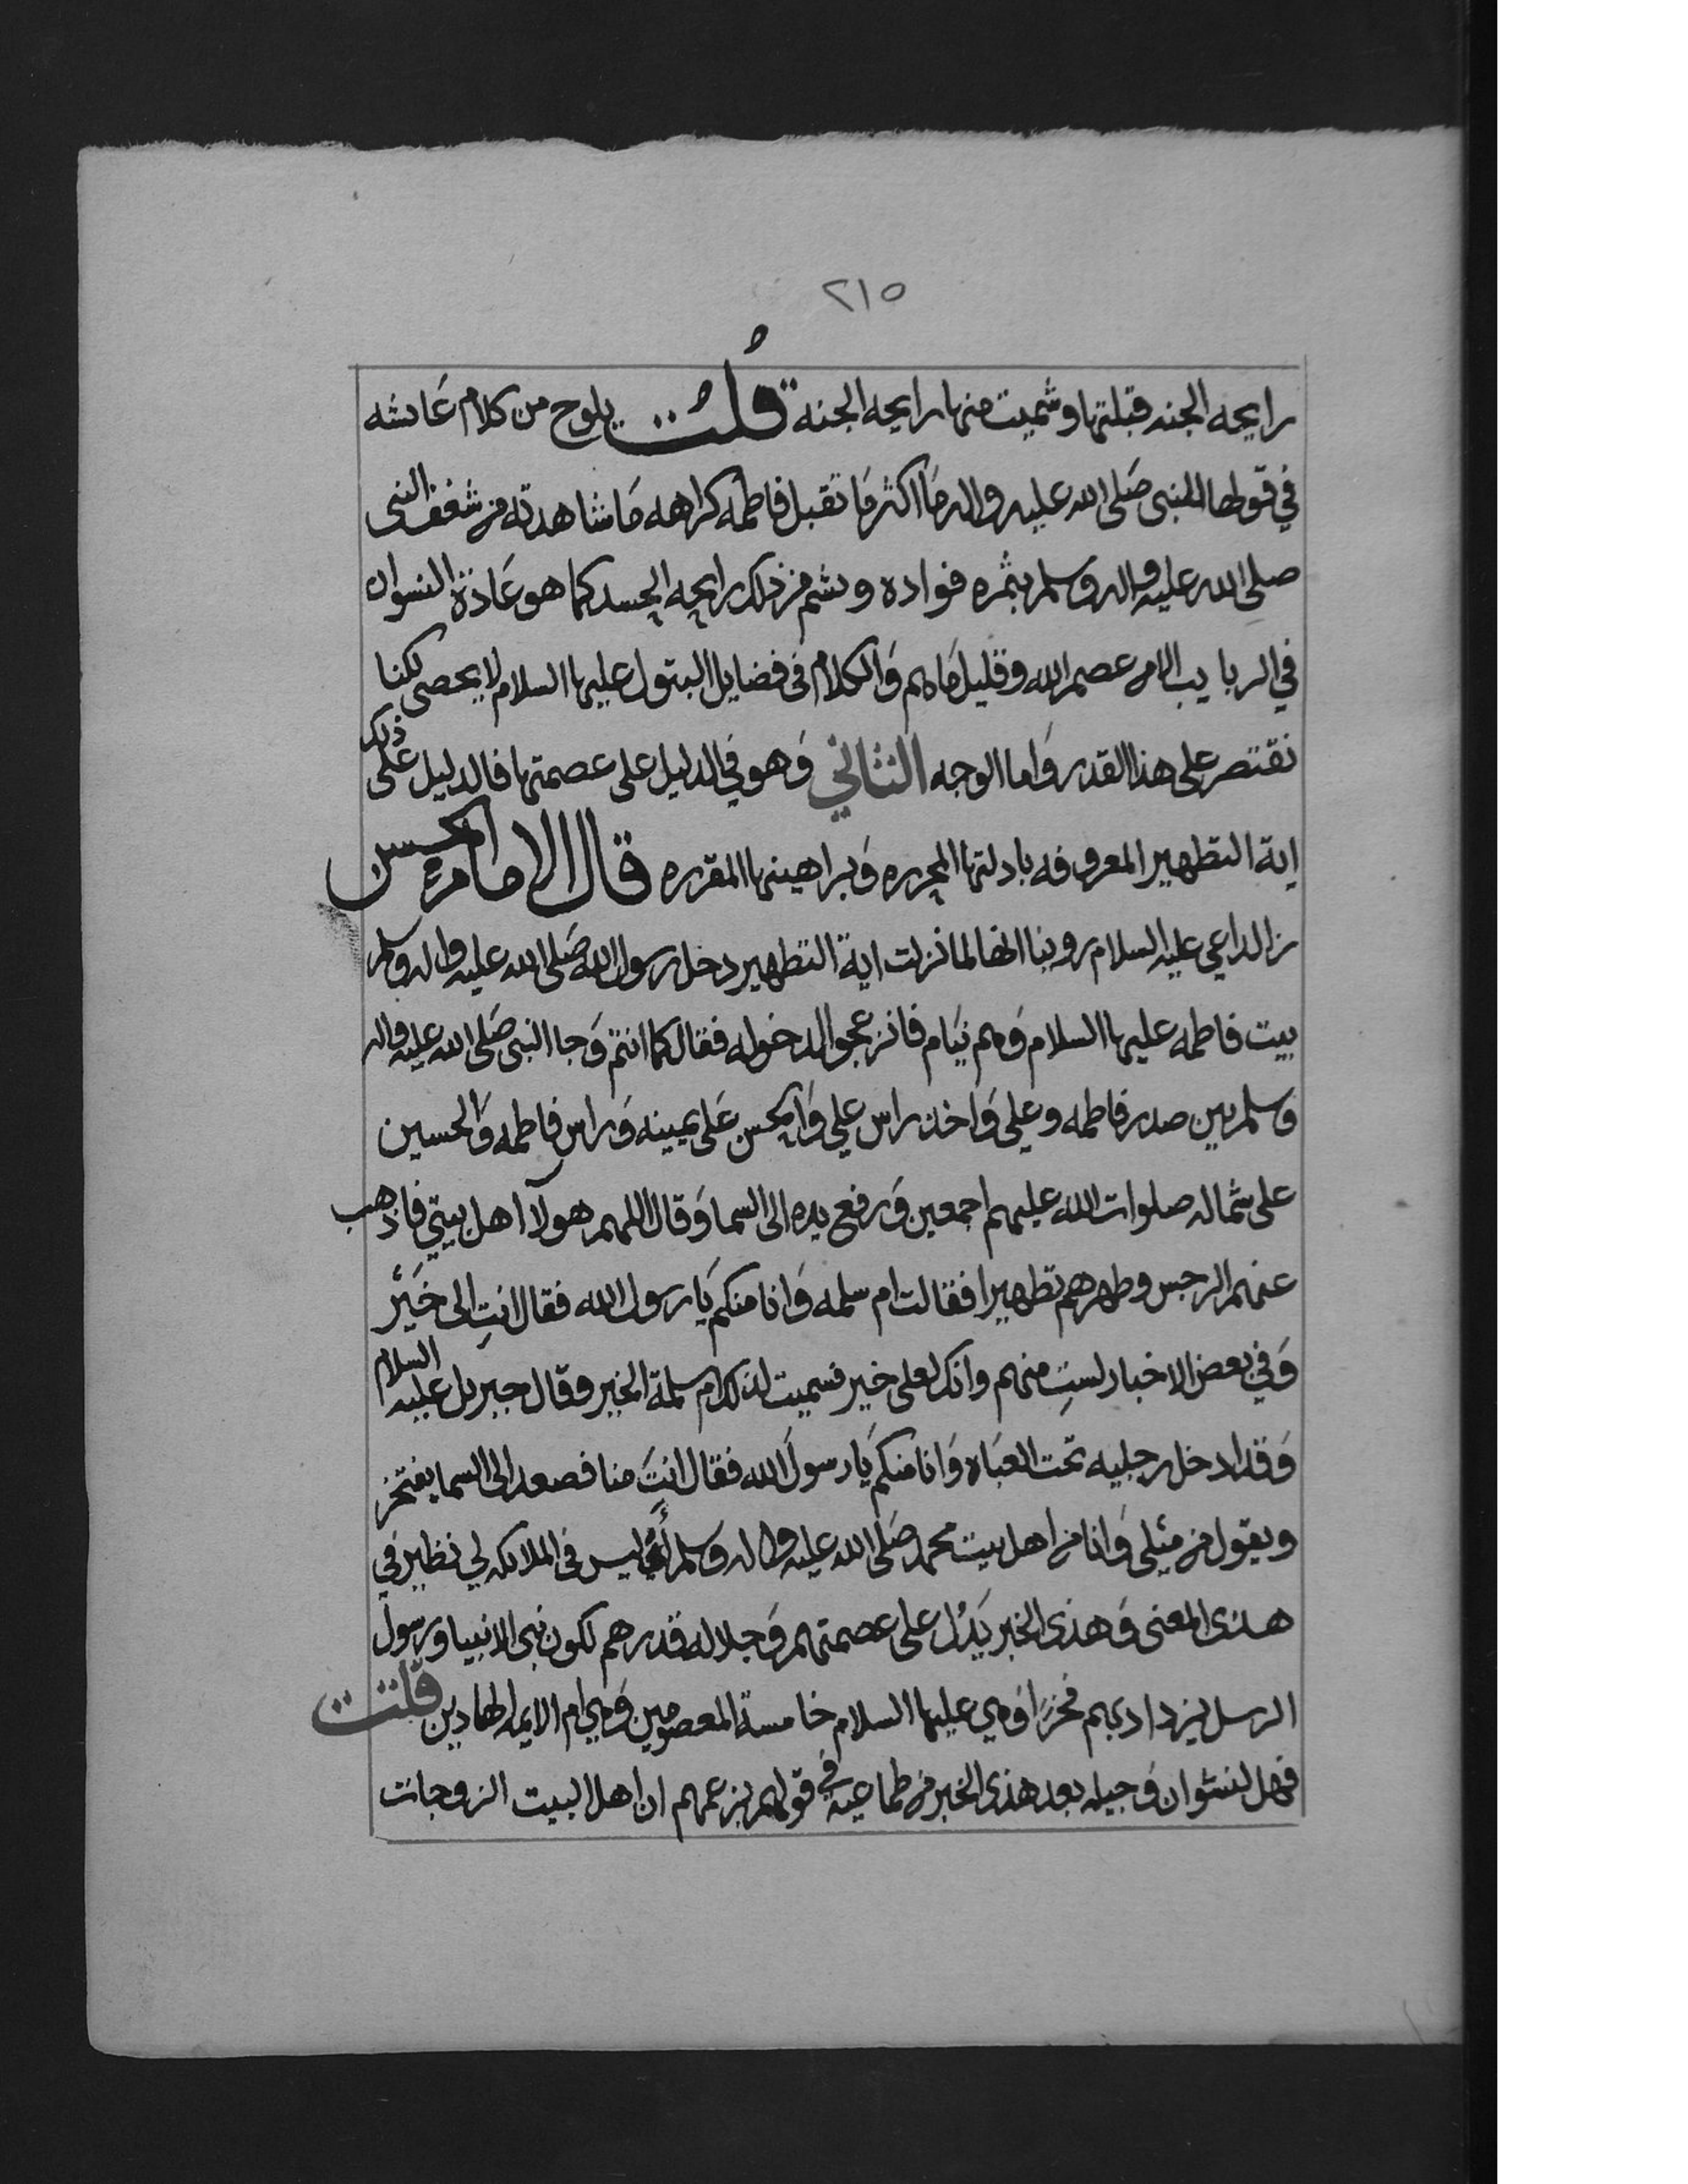 ٢١٥
رايحه الجنه قبلتها وشميت منها رايحه الجنة قُلتُ يلوح من كلام عَايشه
في قولها للنبى صَلى الله عليه واله مَا اكثر مَا تقبل فاطمه كراهه مَا شاهدته من شغف النبى
صلى الله عليه واله وسلم بثمره فواده ويشم من ذلك رايحه الحسد كما هو عَادة النسوان
في الربايب الا من عصم الله وقليل مَا هم وَالكلام فى فضايل البتول عليها السلام لا يحصى لكنا
نقتصر على هذا القدر وَاما الوجه الثاني وَهو في الدليل على عصمتها فالدليل عَلى ذلك
اية التطهير المعروفه بادلتها المحرره وَبراهينها المقرره قال الامام الحسن
بن الداعي عليه السلام روينا انها لما نزلت اية التطهير دخل رسول الله صَلى الله عليه واله وسلم
بيت فاطمه عليها السلام وَهم نيَام فانزعجوا لدخوله فقال كما انتم وَجا النبى صَلى الله عليه واله
وسلم بين صدر فاطمه وعلي وَاخذ راس علي وَالحسن عَلى يمينه وَراس فاطمه وَالحسين
على شماله صلوات الله عليهم اجمعين وَرفع يده الى السما وَقال اللهم هولآ اهل بيتي فاذهب
عنهم الرجس وطهرهم تطهيرا فقالت ام سلمه وَانا منكم يَا رسول الله فقال انتِ الى خَيْر
وَفي بعض الاخبار لستِ منهم وانك لعلى خير فسميت لذلك ام سلمة الخير وقال جبريل عليه السلام
وَقد ادخل رجليه تحت العبَاه وَانا منكم يَا رسولَ الله فقال انتَ منا فصعد الى السما يفتخر
ويقول من مثلى وَانا من اهل بيت محمد صَلى الله عليه واله وَسلم ليس فى الملايكه لي نظير في
هذى المعنى وَهذى الخبر يَدُل على عصمتهم وَجلاله قدرهم لكون نبي الانبيا ورسول
الرسل يزداد بهم فخرًا وَهي عليها السلام خامسة المعصومين وَهي ام الايمه الهادين قلت
فهل لنشوان وَجيله بعد هذى الخبر من طماعيه في قولهم بزعمهم ان اهل البيت الزوجات